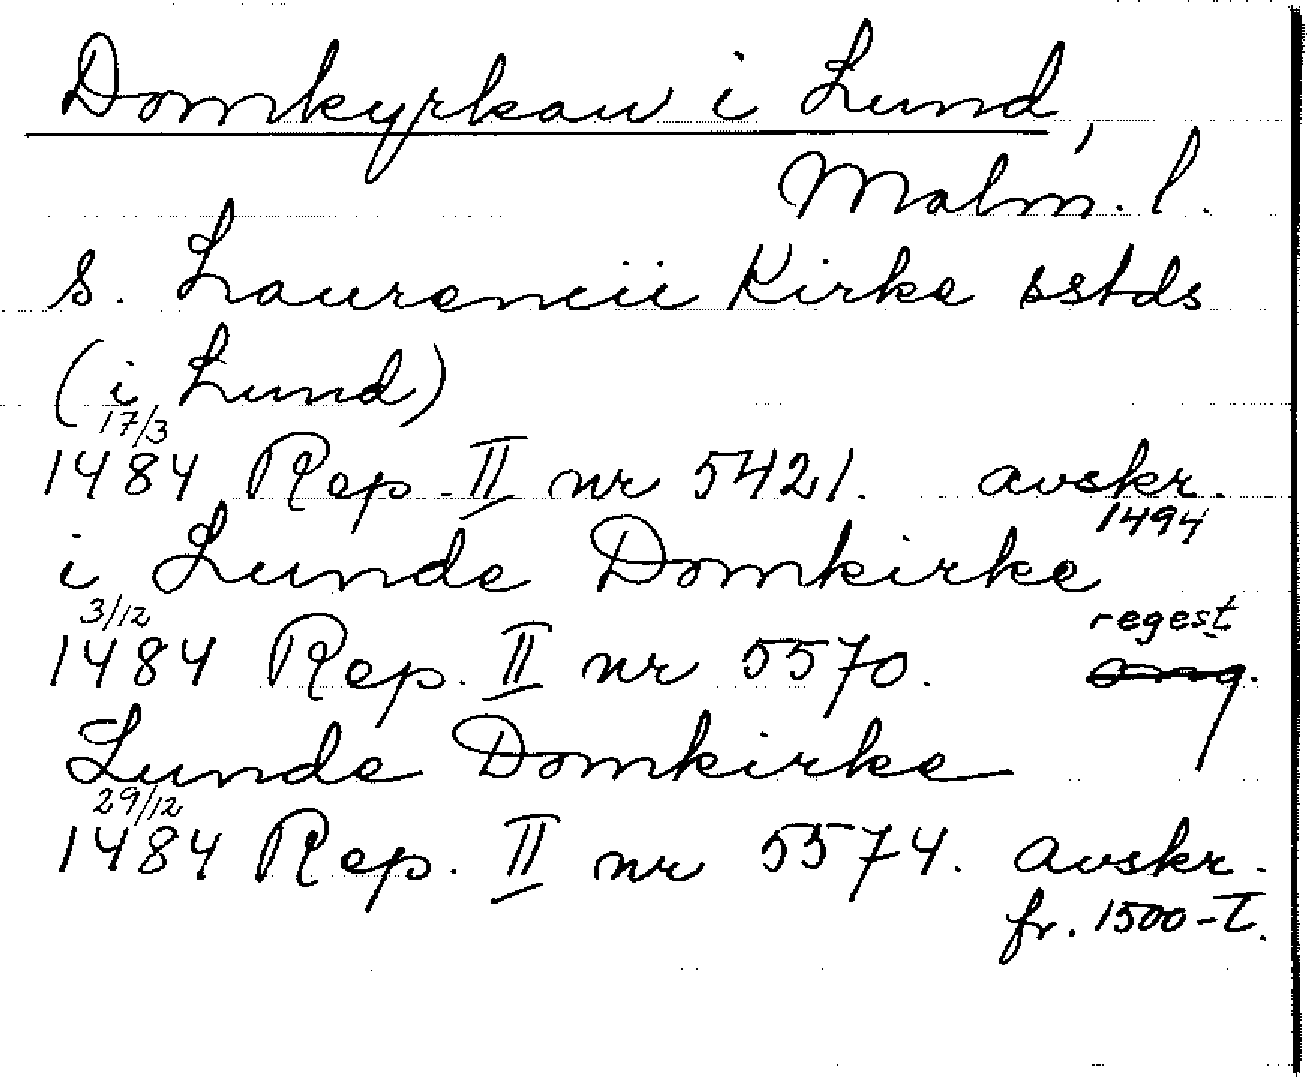 Domkyrkan i Lund,
Malm. l.
S. Laurencii Kirke sstds
(i Lund)
17/3
1484 Rep. II nr 5421. avskr.
1494
i Lunde Domkirke
3/12
regest
1484 Rep. II nr 5570. omg.
Lunde Domkirke
29/12
1484 Rep. II nr 5574. avskr.
fr. 1500-T.